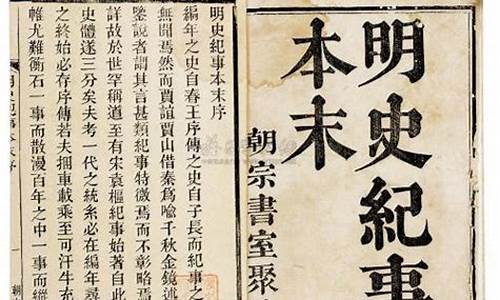 明史紀事
本末
朝宗書室聚
明史紀事本末序
編年之史自春王序傳之史自子長而紀事之
無聞焉然而賈誼賈山借秦為喻千秋金鏡述
鑒說者謂其言甚類紀事特微焉而不彰略焉
詳故於世罕稱道至有宋袁樞紀事始著自此
史體遂三分矣夫考一代之統系必在編年尋
之終始必存序傳若夫捆車載乘至可汗牛充
帷尤難衡石一事而散漫百年之中一事而縱